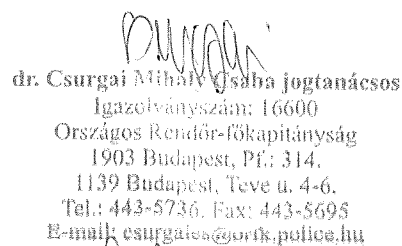 dr. Csurgai Mihály Csaba jogtanácsos
Igazolványszám: 16600
Országos Rendőr-főkapitányság
1903 Budapest, Pf.: 314.
1139 Budapest, Teve u. 4-6.
Tel.: 443-5736, Fax: 443-5695
E-mail: